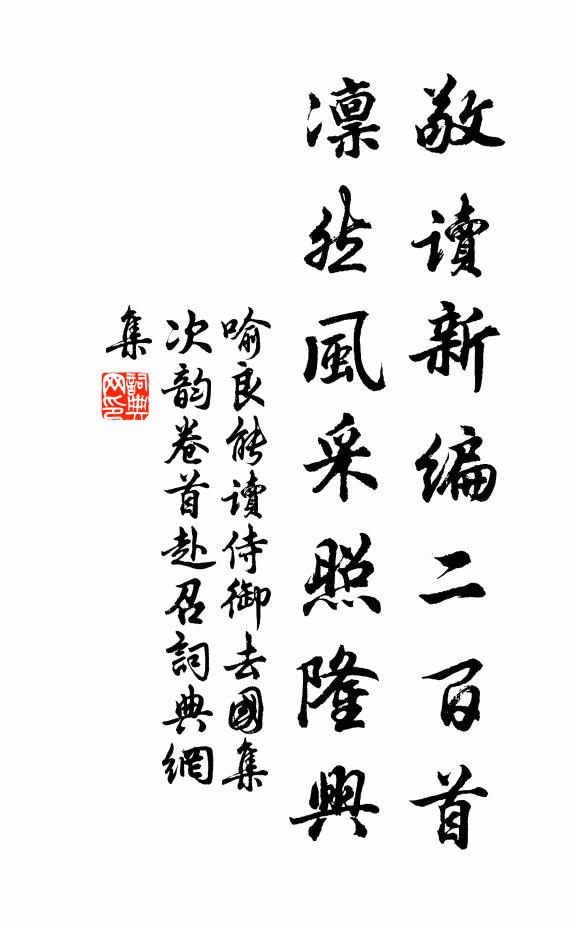 敬讀新编二百首
凜然風采照隆興
喻良能讀侍御去國集
次韵卷首赴召詞典網
集
詞典
网印